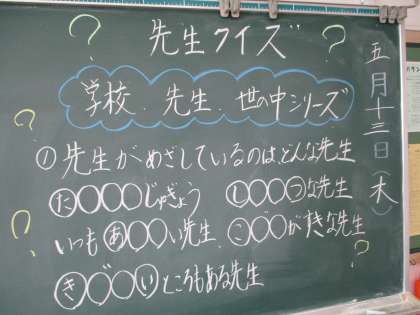 先生クイズ
五月十三日(木)
学校、先生、世の中シリーズ
①先生がめざしているのは、どんな先生
た○○○じゅぎょう し○○つな先生
いつもあ○○い先生、こ○○がすきな先生
き゛○○いところもある先生